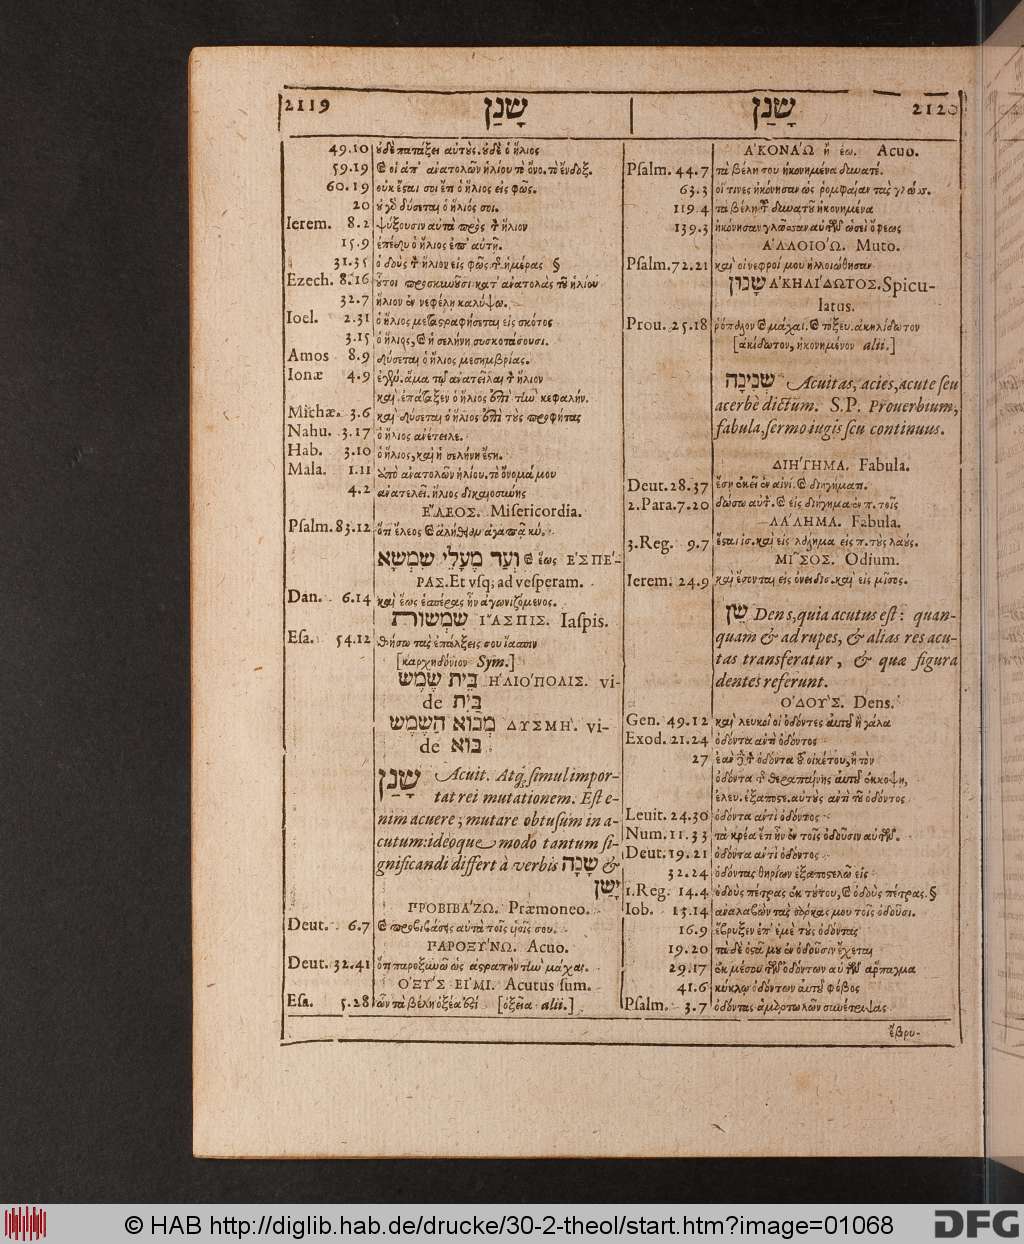 2119 שָׁנַן | שָׁנַן 2120
49.10 οὐδὲ πατάξει αὐτοὺς. οὐδὲ ὁ ἥλιος
59.19 καὶ οἱ ἀπ' ἀνατολῶν ἡλίου τὸ ὄνο. τὸ ἔνδοξ.
60.19 οὐκ ἔσται σοι ἔτι ὁ ἥλιος εἰς φῶς.
20 οὐ γὰρ δύσεται ὁ ἥλιός σοι.
Ierem. 8.2 ψύξουσιν αὐτὰ πρὸς τὸν ἥλιον
15.9 ἐπέδυ ὁ ἥλιος ἐπ' αὐτῇ.
31.35 ὁ δοὺς τὸν ἥλιον εἰς φῶς τῆς ἡμέρας §
Ezech. 8.16 οὗτοι προσκυνοῦσι κατ' ἀνατολὰς τοῦ ἡλίου
32.7 ἥλιον ἐν νεφέλῃ καλύψω.
Ioel. 2.31 ὁ ἥλιος μεταστραφήσεται εἰς σκότος
3.15 ὁ ἥλιος, καὶ ἡ σελήνη συσκοτάσουσι.
Amos 8.9 δύσεται ὁ ἥλιος μεσημβρίας.
Ionæ 4.9 ἅμα τῷ ἀνατεῖλαι τὸν ἥλιον
καὶ ἐπάταξεν ὁ ἥλιος ἐπὶ τὴν κεφαλήν.
Michæ. 3.6 καὶ δύσεται ὁ ἥλιος ἐπὶ τοὺς προφήτας
Nahu. 3.17 ὁ ἥλιος ἀνέτειλε.
Hab. 3.10 ὁ ἥλιος, καὶ ἡ σελήνη ἔστη.
Mala. 1.11 ἀπὸ ἀνατολῶν ἡλίου. τὸ ὄνομά μου
4.2 ἀνατελεῖ. ἥλιος δικαιοσύνης
ἜΛΕΟΣ. Misericordia.
Psalm. 83.12 ὅτι ἔλεος καὶ ἀλήθειαν ἀγαπᾷ κύ.
וְעַד מֶעָלֵי שִׁמְשָׁא καὶ ἕως ἙΣΠΕ΄-
ΡΑΣ. Et vsq; ad vesperam.
Dan. 6.14 καὶ ἕως ἑσπέρας ἦν ἀγωνιζόμενος.
שִׁמְשׁוֹת ἼΑΣΠΙΣ. Iaspis.
Esa. 54.12 θήσω τὰς ἐπάλξεις σου ἴασπιν
[καρχηδόνιον Sym.]
בֵּית שֶׁמֶשׁ ἩΛΙΟΎΠΟΛΙΣ. vi-
de בַּיִת
מְבוֹא הַשֶּׁמֶשׁ ΔΥΣΜΗ΄. vi-
de בּוֹא
שָׁנַן Acuit. Atq; simul impor-
tat rei mutationem. Est e-
nim acuere, mutare obtusum in a-
cutum: ideoque modo tantum si-
gnificandi differt à verbis שָׁנָה &
יָשַׁן
ΠΡΟΒΙΒΆΖΩ. Præmoneo.
Deut. 6.7 καὶ προβιβάσεις αὐτὰ τοῖς υἱοῖς σου.
ΠΑΡΟΞΎΝΩ. Acuo.
Deut. 32.41 ὅτι παροξυνῶ ὡς ἀστραπὴν τὴν μάχαι.
ὈΞΎΣ ΕἸΜΙ. Acutus sum.
Esa. 5.28 ὧν τὰ βέλη ὀξέα ἐστὶ [ὀξεῖα alii.]
ἈΚΟΝΆΩ ἢ έω. Acuo.
Psalm. 44.7 τὰ βέλη σου ἠκονημένα δυνατέ.
63.3 οἵ τινες ἠκόνησαν ὡς ῥομφαίαν τὰς γλώσ.
119.4 τὰ βέλη τοῦ δυνατοῦ ἠκονημένα
139.3 ἠκόνησαν γλῶσσαν αὐτῶν ὡσεὶ ὄφεως
ἈΛΛΟΙΌΩ. Muto.
Psalm. 72.21 καὶ οἱ νεφροί μου ἠλλοιώθησαν
שָׁנוּן ἈΚΗΛΊΔΩΤΟΣ. Spicu-
latus.
Prou. 25.18 ῥόπαλον καὶ μάχαι. καὶ τόξευ. ἀκηλίδωτον
[ἀκιδωτον, ἠκονημένον alii.]
שְׁנִינָה Acuitas, acies, acute seu
acerbè dictum. S.P. Prouerbium,
fabula, sermo iugis seu continuus.
ΔΙΗ΄ΓΗΜΑ. Fabula.
Deut. 28.37 ἔσῃ ἐκεῖ ἐν αἰνί. καὶ διηγήματι.
2.Para. 7.20 δώσω αὐτ. καὶ εἰς διήγημα ἐν π. τοῖς
ΛΆΛΗΜΑ. Fabula.
3.Reg. 9.7 ἔσται ἰσ. καὶ εἰς λάλημα εἰς π. τοὺς λαούς.
ΜΙ͂ΣΟΣ. Odium.
Ierem. 24.9 καὶ ἔσονται εἰς ὀνειδισ. καὶ εἰς μῖσος.
שֵׁן Dens, quia acutus est: quan-
quam & ad rupes, & alias res acu-
tas transferatur, & quæ figura
dentes referunt.
ὈΔΟΎΣ. Dens.
Gen. 49.12 καὶ λευκοὶ οἱ ὀδόντες αὐτοῦ ἢ γάλα
Exod. 21.24 ὀδόντα ἀντὶ ὀδόντος
27 ἐὰν δὲ τὸν ὀδόντα τοῦ οἰκέτου, ἢ τὸν
ὀδόντα τῆς θεραπαίνης αὐτοῦ ἐκκόψῃ,
ἐλευ. ἐξαποστε. αὐτοὺς ἀντὶ τοῦ ὀδόντος
Leuit. 24.30 ὀδόντα ἀντὶ ὀδόντος
Num. 11.33 τὰ κρέα ἔτι ἦν ἐν τοῖς ὀδοῦσιν αὐτῶν.
Deut. 19.21 ὀδόντα ἀντὶ ὀδόντος
32.24 ὀδόντας θηρίων ἐξαποστελῶ εἰς
1.Reg. 14.4 ὀδοὺς πέτρας ἐκ τούτου, καὶ ὀδοὺς πέτρας. §
Iob. 13.14 ἀναλαβὼν τὰς σάρκας μου τοῖς ὀδοῦσι.
16.9 ἔβρυξεν ἐπ' ἐμὲ τοὺς ὀδόντας
19.20 τὰ δὲ ὀστᾶ μου ἐν ὀδοῦσιν ἔχεται
29.17 ἐκ μέσου τῶν ὀδόντων αὐτῶν ἅρπαγμα
41.6 κύκλῳ ὀδόντων αὐτοῦ φόβος
Psalm. 3.7 ὀδόντας ἁμαρτωλῶν συνέτριψας
ἔβρυ-
© HAB http://diglib.hab.de/drucke/30-2-theol/start.htm?image=01068
DFG